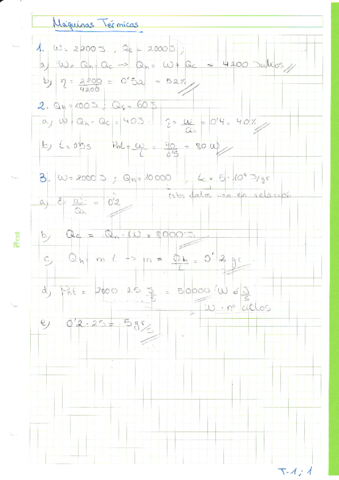 Máquinas Térmicas
1. W = 2200 J ; Qc = 2000 J ;
a) W = Qh - Qc → Qh = W + Qc = 4200 Julios
b) η = 2200/4200 = 0'52 = 52%
2. Qh = 100 J ; Qc = 60 J
a) W = Qh - Qc = 40 J η = W/Qh = 0'4 = 40%
b) t = 0'5 s Pot = W/t = 40/0'5 = 80 W
3. W = 2000 J ; Qh = 10000 L = 5·10⁴ J/gr
a) = W/Qh = 0'2
b) Qc = Qh - W = 8000 J
c) Qh = m L → m = Qh/L = 0'2 gr
d) Pot = 2000·25 J/s = 50000 W
W · nº ciclos
e) 0'2 · 25 = 5 gr/s
T.1 ; 1